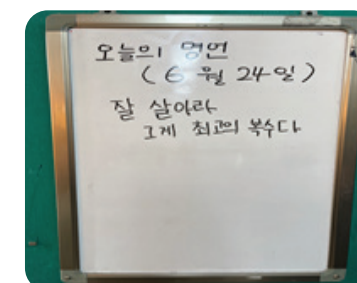 오늘의 명언
(6월 24일)
잘 살아라
그게 최고의 복수다